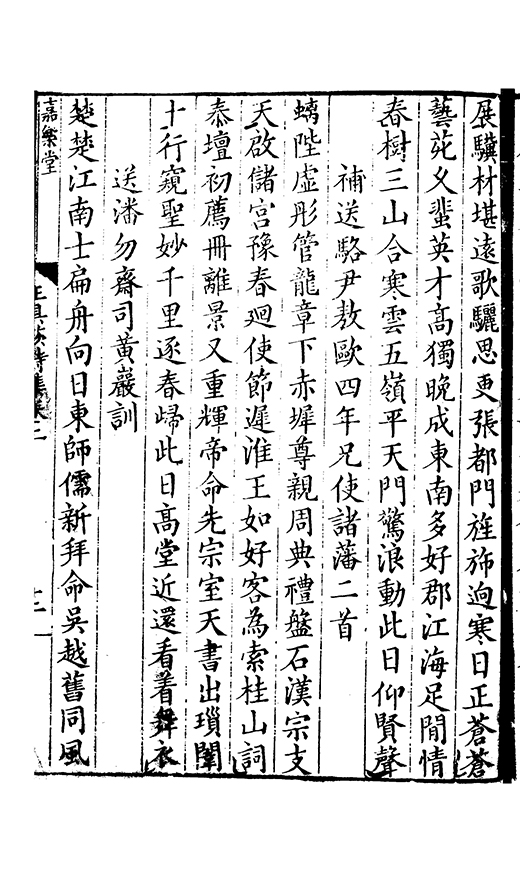 展驥材堪遠歌驪思更張都門旌斾逈寒日正蒼蒼
藝苑乂蜚英才高獨晚成東南多好郡江海足閒情
春樹三山合寒雲五嶺平天門驚浪動此日仰賢聲
補送駱尹敖歐四年兄使諸藩二首
螭陛虛彤管龍章下赤墀尊親周典禮盤石漢宗支
天啟儲宮豫春廻使節遲淮王如好客為索桂山詞
泰壇初薦冊離景又重輝帝命先宗室天書出瑣闈
十行窺聖妙千里逐春歸此日高堂近還看着舞衣
送潘勿齋司黃巖訓
楚楚江南士扁舟向日東師儒新拜命吳越舊同風
嘉樂堂